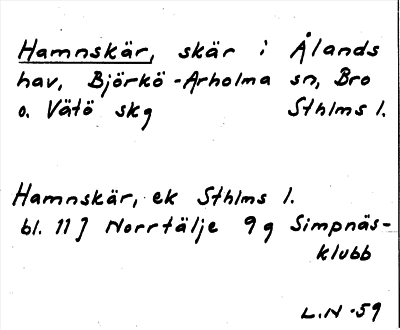 Hamnskär, skär i Ålands
hav, Björkö-Arholma sn, Bro
o. Vätö skg Sthlms l.
Hamnskär, ek Sthlms l.
bl. 11 J Norrtälje 9g Simpnäs-
klubb
L.N -59